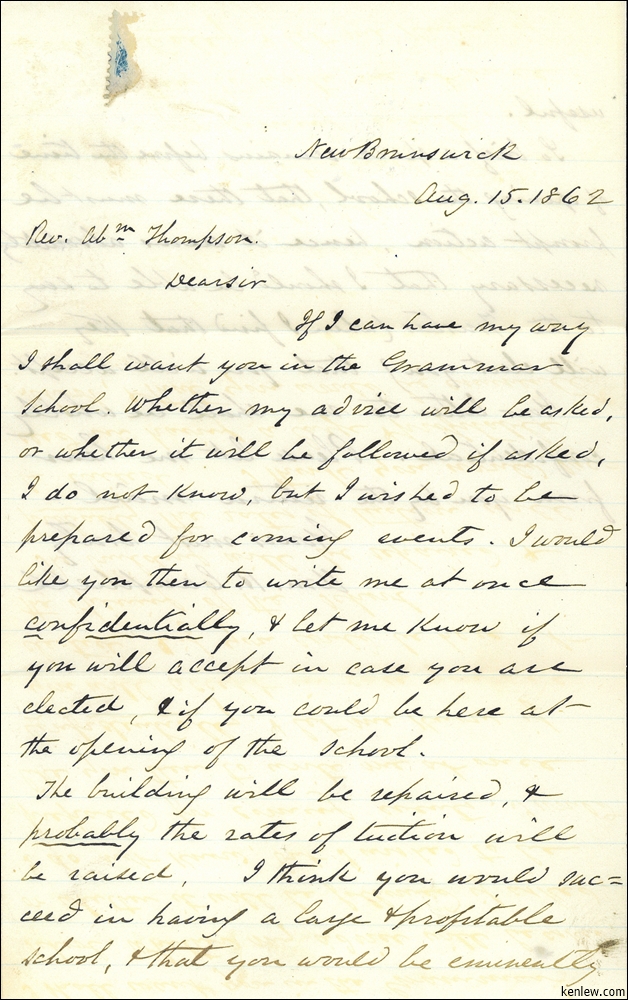 New Brunswick
Aug. 15. 1862
Rev. Abm Thompson.
Dear sir
If I can have my way
I shall want you in the Grammar
School. Whether my advice will be asked,
or whether it will be followed if asked,
I do not know, but I wished to be
prepared for coming events. I would
like you then to write me at once
confidentially, & let me know if
you will accept in case you are
elected, & if you could be here at
the opening of the school.
The building will be repaired, &
probably the rates of tuition will
be raised. I think you would suc=
ceed in having a large & profitable
school, & that you would be eminently
kenlew.com